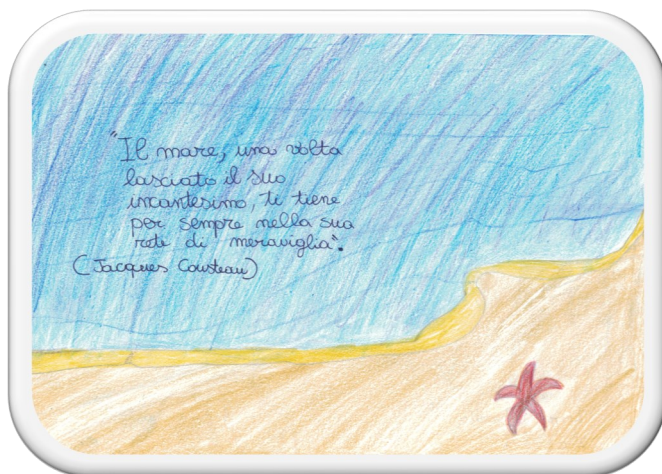 "Il mare, una volta
lasciato il suo
incantesimo, ti tiene
per sempre nella sua
rete di meraviglia".
(Jacques Cousteau)